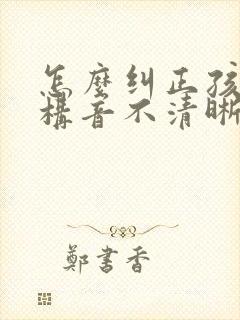 怎麼糾正孩
構音不清晰
鄭書香